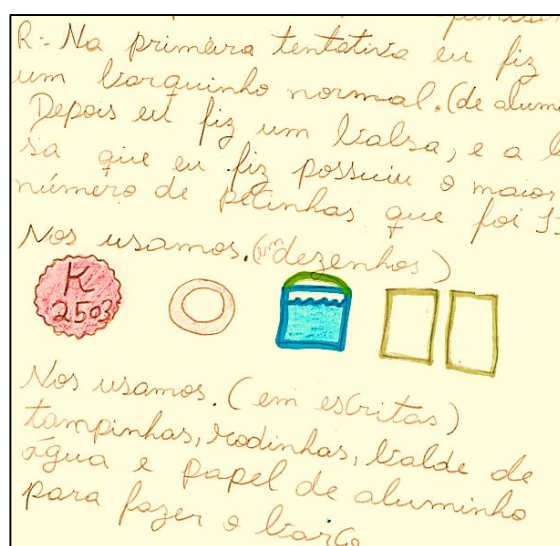 R:- Na primeira tentativa eu fiz
um barquinho normal. (de alum
Depois eu fiz um balsa, e a b
sa que eu fiz possuiu o maior
número de petinhas que foi 13
Nos usamos. (em dezenhos)
K
2503
Nos usamos. (em escritas)
tampinhas, rodinhas, balde de
água e papel de aluminho
para fazer o barco